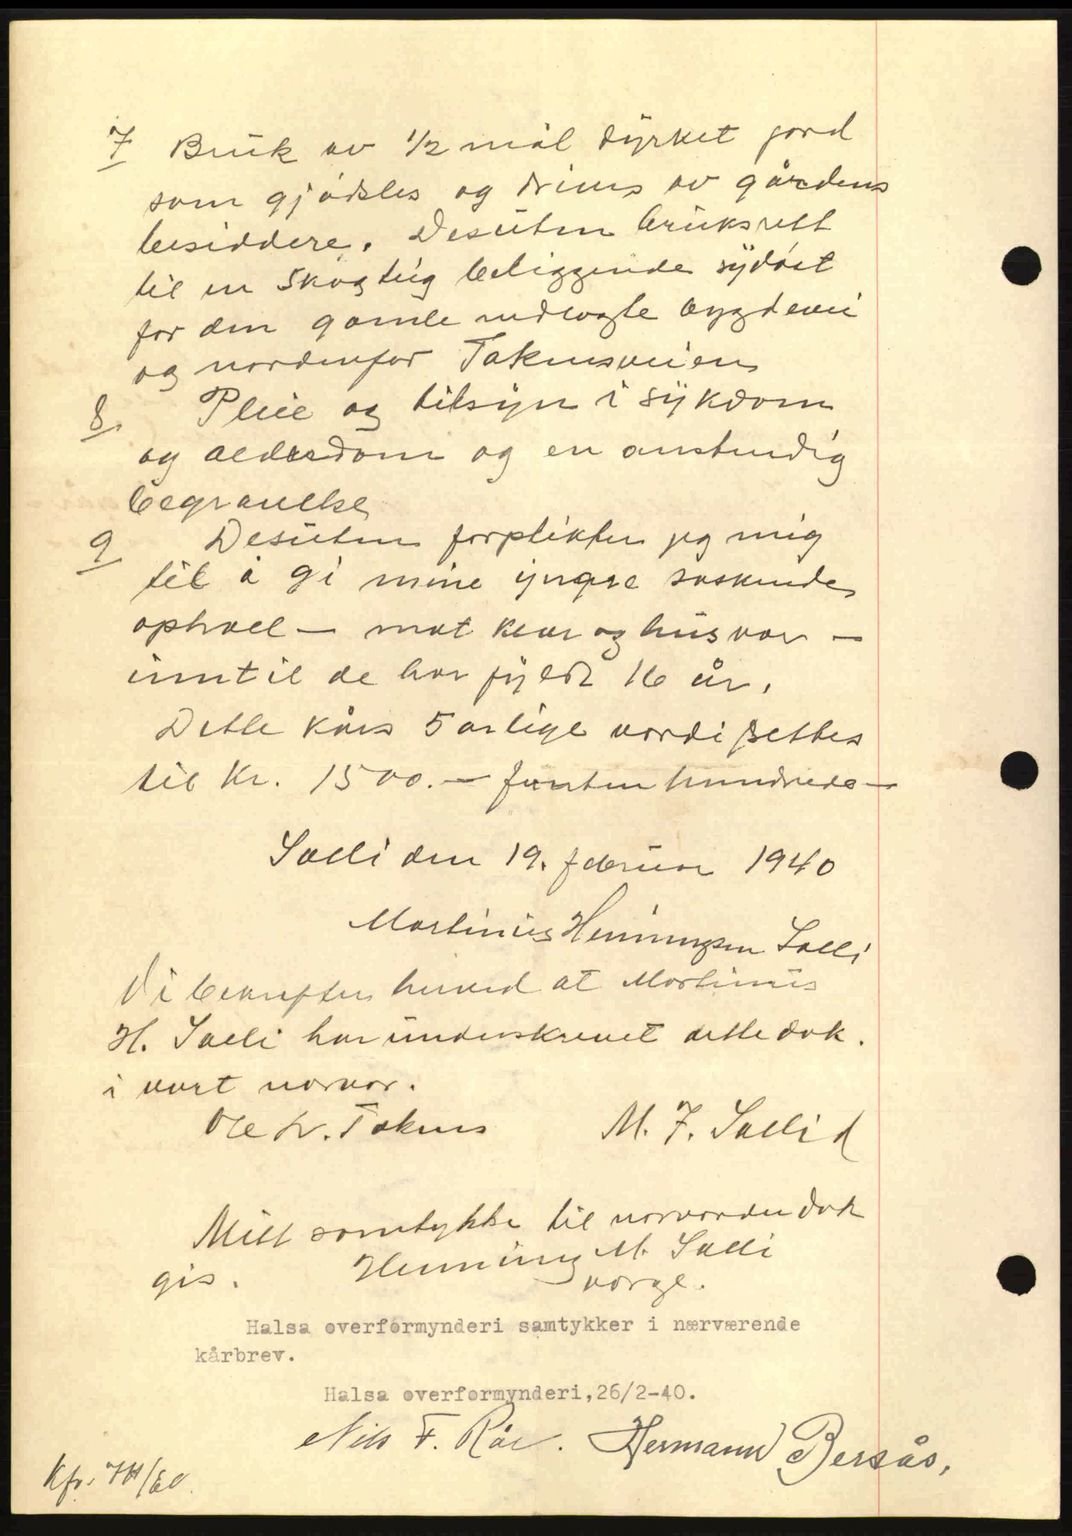 7 Bruk av 1/2 mål dyrket jord
som gjødsles og drives av gårdens
besiddere. Desuten bruksrett
til en skogteig beliggende sydøst
for den gamle nedlagte bygdevei
og nordenfor Taknesveien
8. Pleie og tilsyn i sykdom
og alderdom og en anstendig
begravelse
9 Desuten forplikter jeg mig
til å gi mine yngre søskende
ophold — mat klær og husvær —
inntil de har fyldt 16 år.
Dette kårs 5 årlige verdi settes
til Kr. 1500.— femten hundrede —
Sæli den 19. februar 1940
Martinus Henningsen Sæli
Vi bekrefter herved at Martinus
H. Sæli har underskrevet dette dok.
i vort nærvær.
Ole Taknes M. J. Sæli d
Mitt samtykke til nærværende dok
gis. Henning M. Sæli
verge.
Halsa overformynderi samtykker i nærværende
kårbrev.
Halsa overformynderi,26/2-40.
Nils F. Røe. Hermann Bersås,
Kfr.